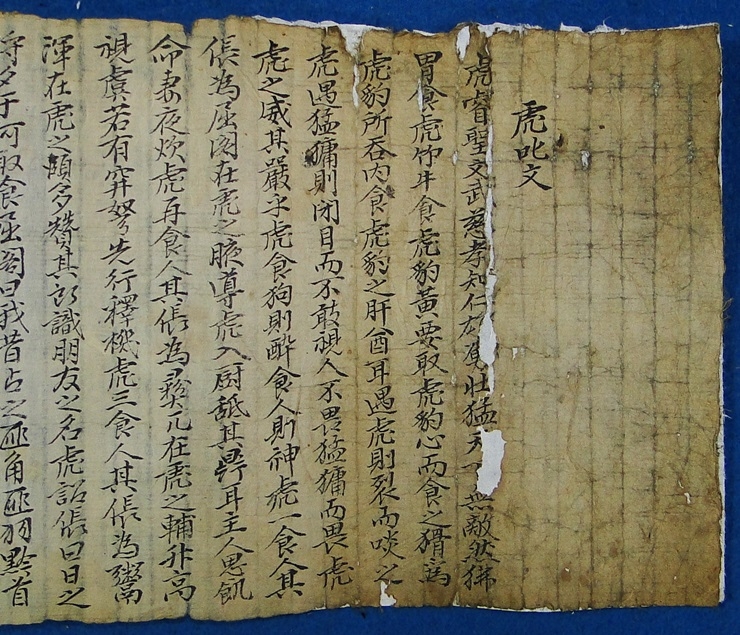 虎叱文
虎睿聖文武慈孝知仁雄勇壯猛天下無敵然狒
胃食虎竹牛食虎豹黃要取虎豹心而食之猾爲
虎豹所呑内食虎豹之肝酋耳遇虎則裂而啖之
虎遇猛㺎則閉目而不敢視人不畏猛㺎而畏虎
虎之威其嚴乎虎食狗則醉食人則神虎一食人其
倀為屈閣在虎之腋導虎入厨舐其鼎耳主人思飢
命妻夜炊虎再食人其倀為彝兀在虎之輔升高
視虞若有穽弩先行釋機虎三食人其倀為鬻
渾在虎之頤多贊其所識朋友之名虎詔倀曰日之
將夕于可取食屈閣曰我昔占之匪角匪羽黔首